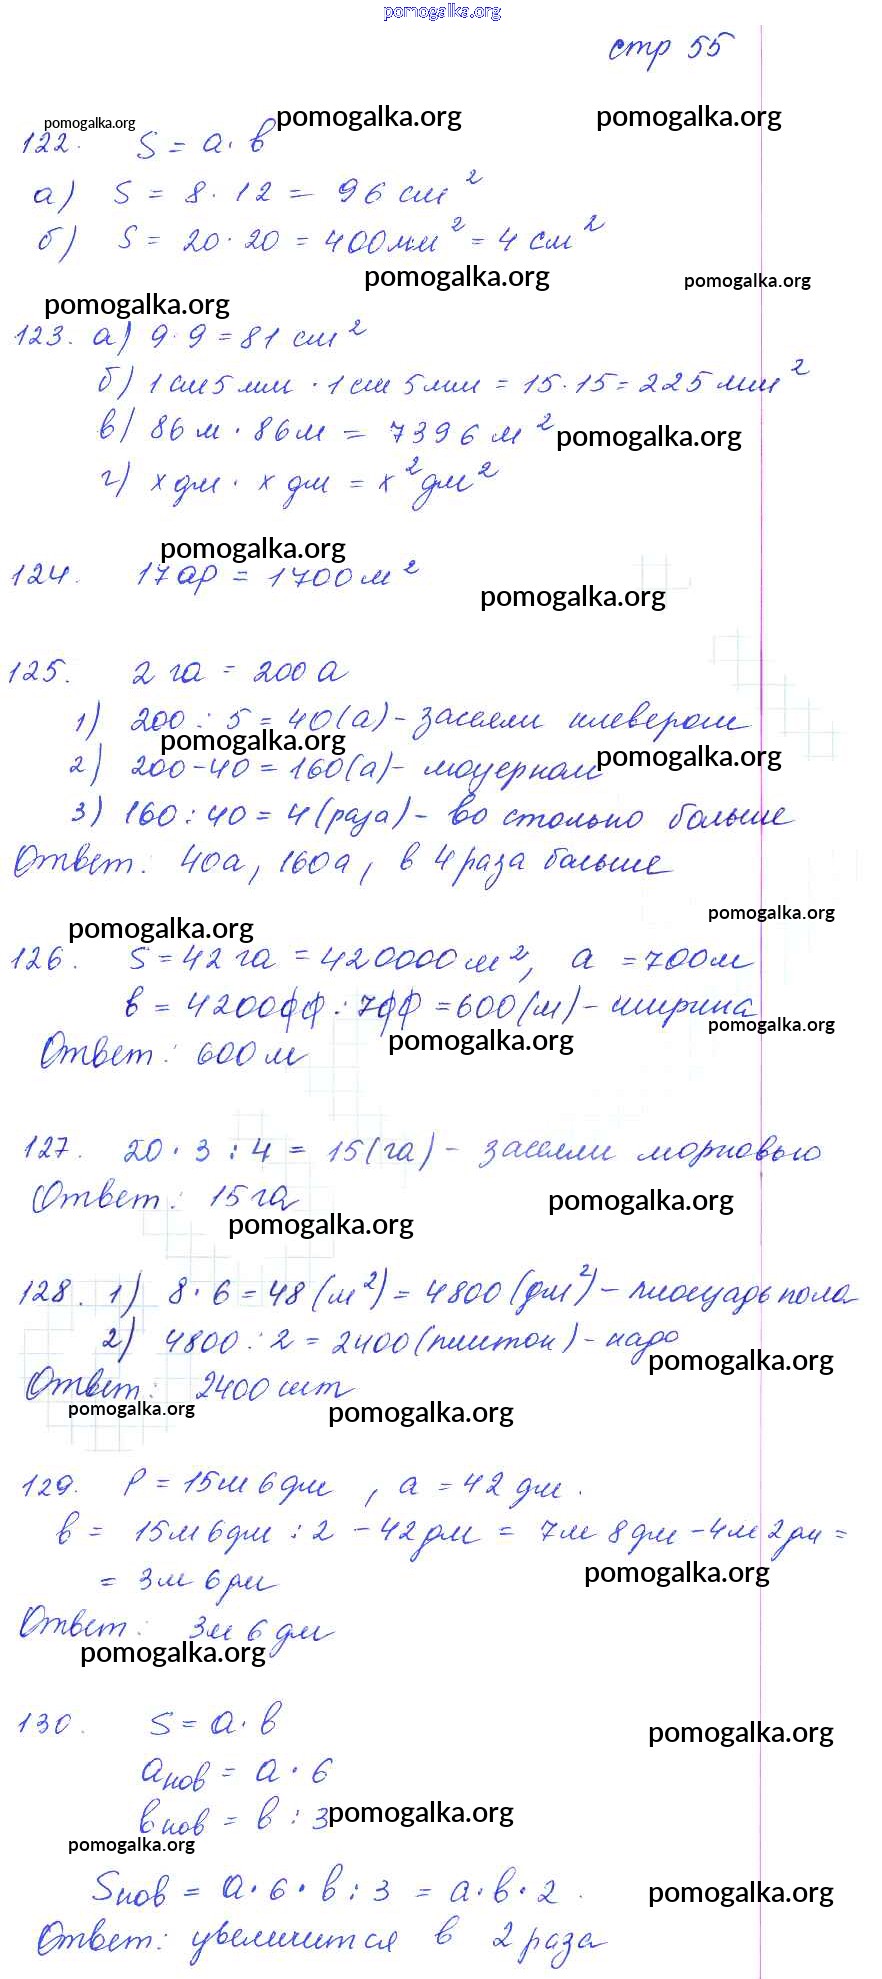 pomogalka.org
стр 55
pomogalka.org pomogalka.org pomogalka.org
122. S = a · b
а) S = 8 · 12 = 96 см²
б) S = 20 · 20 = 400 мм² = 4 см²
pomogalka.org pomogalka.org
pomogalka.org
123. а) 9 · 9 = 81 см²
б) 1 см 5 мм · 1 см 5 мм = 15 · 15 = 225 мм²
в) 86 м · 86 м = 7396 м²
pomogalka.org
г) x дм · x дм = x² дм²
pomogalka.org
124. 17 ар = 1700 м²
pomogalka.org
125. 2 га = 200 а
1) 200 : 5 = 40 (а) - засеяли клевером
pomogalka.org pomogalka.org
2) 200 - 40 = 160 (а) - люцерной
3) 160 : 40 = 4 (раза) - во столько больше
Ответ: 40 а, 160 а, в 4 раза больше
pomogalka.org
pomogalka.org
126. S = 42 га = 420000 м², a = 700 м
b = 420000 : 700 = 600 (м) - ширина
pomogalka.org
pomogalka.org
Ответ: 600 м
127. 20 · 3 : 4 = 15 (га) - засеяли морковью
Ответ: 15 га
pomogalka.org
pomogalka.org
128. 1) 8 · 6 = 48 (м²) = 4800 (дм²) - площадь пола
2) 4800 : 2 = 2400 (плиток) - надо
pomogalka.org
Ответ: 2400 шт
pomogalka.org pomogalka.org
129. P = 15 м 6 дм, a = 42 дм.
b = 15 м 6 дм : 2 - 42 дм = 7 м 8 дм - 4 м 2 дм =
pomogalka.org
= 3 м 6 дм
Ответ: 3 м 6 дм
pomogalka.org
130. S = a · b
pomogalka.org
aнов = a · 6
bнов = b : 3
pomogalka.org
pomogalka.org
Sнов = a · 6 · b : 3 = a · b · 2.
pomogalka.org
Ответ: увеличится в 2 раза